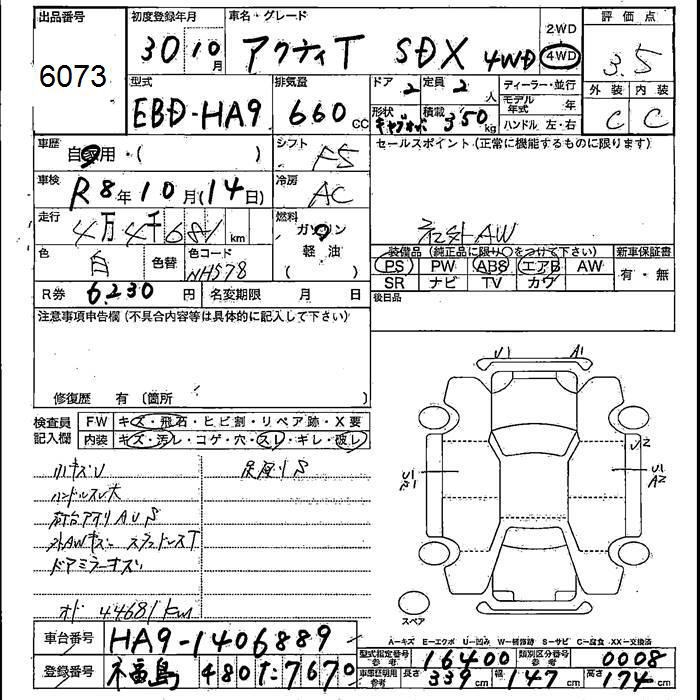 出品番号 6073
初度登録年月 30 10月
車名・グレード アクティT SDX 4WD
2WD
4WD
評価点 3.5
外装 C 内装 C
型式 EBD-HA9
排気量 660cc
ドア 2 定員 2人
形状 積載 350kg
ディーラー・並行
モデル年式 年
ハンドル 左・右
車歴 自家用・( )
シフト F5
セールスポイント(正常に機能するものに限ります)
社外AW
車検 R8年10月(14日)
冷房 AC
走行 4万4千681km
燃料 ガソリン
軽油
( )
色 白 色替 色コード NH578
R券 6230円 名変期限 月 日
装備品(純正品に限り○をつけて下さい) 新車保証書
PS PW ABS エアB AW 有・無
SR ナビ TV カワ
後日品
注意事項申告欄(不具合内容等は具体的に記入して下さい)
修復歴 有(箇所 )
検査員記入欄 FW キズ・飛石・ヒビ割・リペア跡・X要
内装 キズ・汚レ・コゲ・穴・スレ・ギレ・破レ
小キズU
ハンドルスレ大
荷台アオリAUS
外AWキズ スタッドレスT
ドアミラーキズ
オド 44681km
下廻りS
U1 A1
U2
U1
U1
A2
スペア
A-キズ E-エクボ U-凹み W-補修跡 S-サビ C-腐食 XX-交換済
車台番号 HA9-1406889
登録番号 福島 480た7670
型式指定番号 参考 16400 類別区分番号 参考 0008
車庫証明用 参考 長さ 339cm 幅 147cm 高さ 174cm